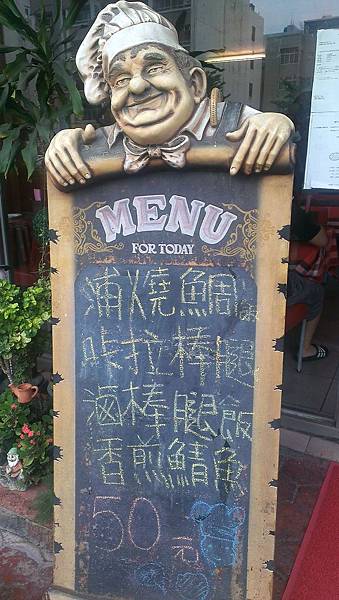 MENU
FOR TODAY
浦燒鯛飯
咔拉棒腿
滷棒腿飯
香煎鯖魚
50元